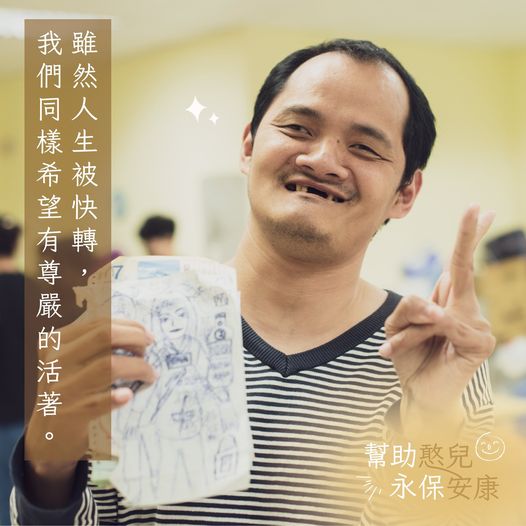 雖然人生被快轉，
我們同樣希望有尊嚴的活著。
7
幫助憨兒
永保安康